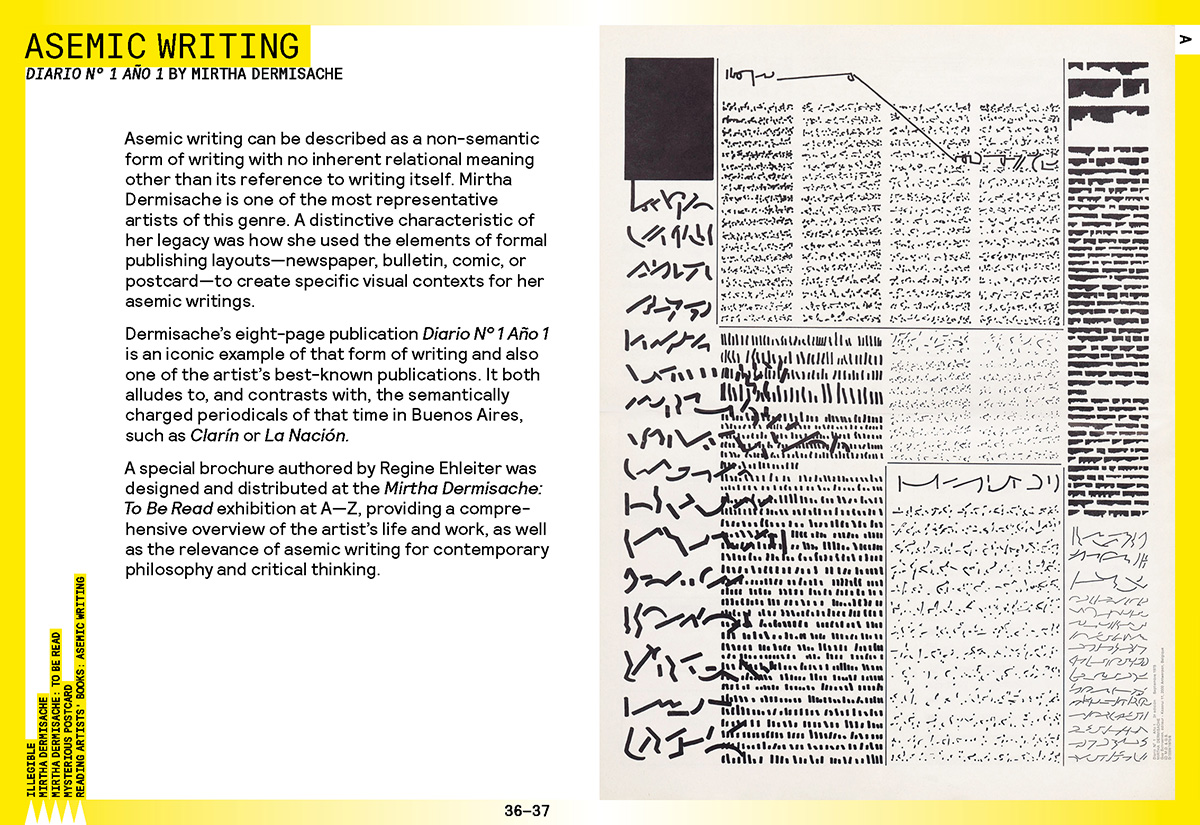 ASEMIC WRITING
DIARIO Nº 1 AÑO 1 BY MIRTHA DERMISACHE
Asemic writing can be described as a non-semantic
form of writing with no inherent relational meaning
other than its reference to writing itself. Mirtha
Dermisache is one of the most representative
artists of this genre. A distinctive characteristic of
her legacy was how she used the elements of formal
publishing layouts—newspaper, bulletin, comic, or
postcard—to create specific visual contexts for her
asemic writings.
Dermisache’s eight-page publication Diario Nº 1 Año 1
is an iconic example of that form of writing and also
one of the artist’s best-known publications. It both
alludes to, and contrasts with, the semantically
charged periodicals of that time in Buenos Aires,
such as Clarín or La Nación.
A special brochure authored by Regine Ehleiter was
designed and distributed at the Mirtha Dermisache:
To Be Read exhibition at A—Z, providing a compre-
hensive overview of the artist’s life and work, as well
as the relevance of asemic writing for contemporary
philosophy and critical thinking.
ILLEGIBLE
MIRTHA DERMISACHE
MIRTHA DERMISACHE: TO BE READ
MYSTERIOUS POSTCARD
READING ARTISTS’ BOOKS: ASEMIC WRITING
36–37
A